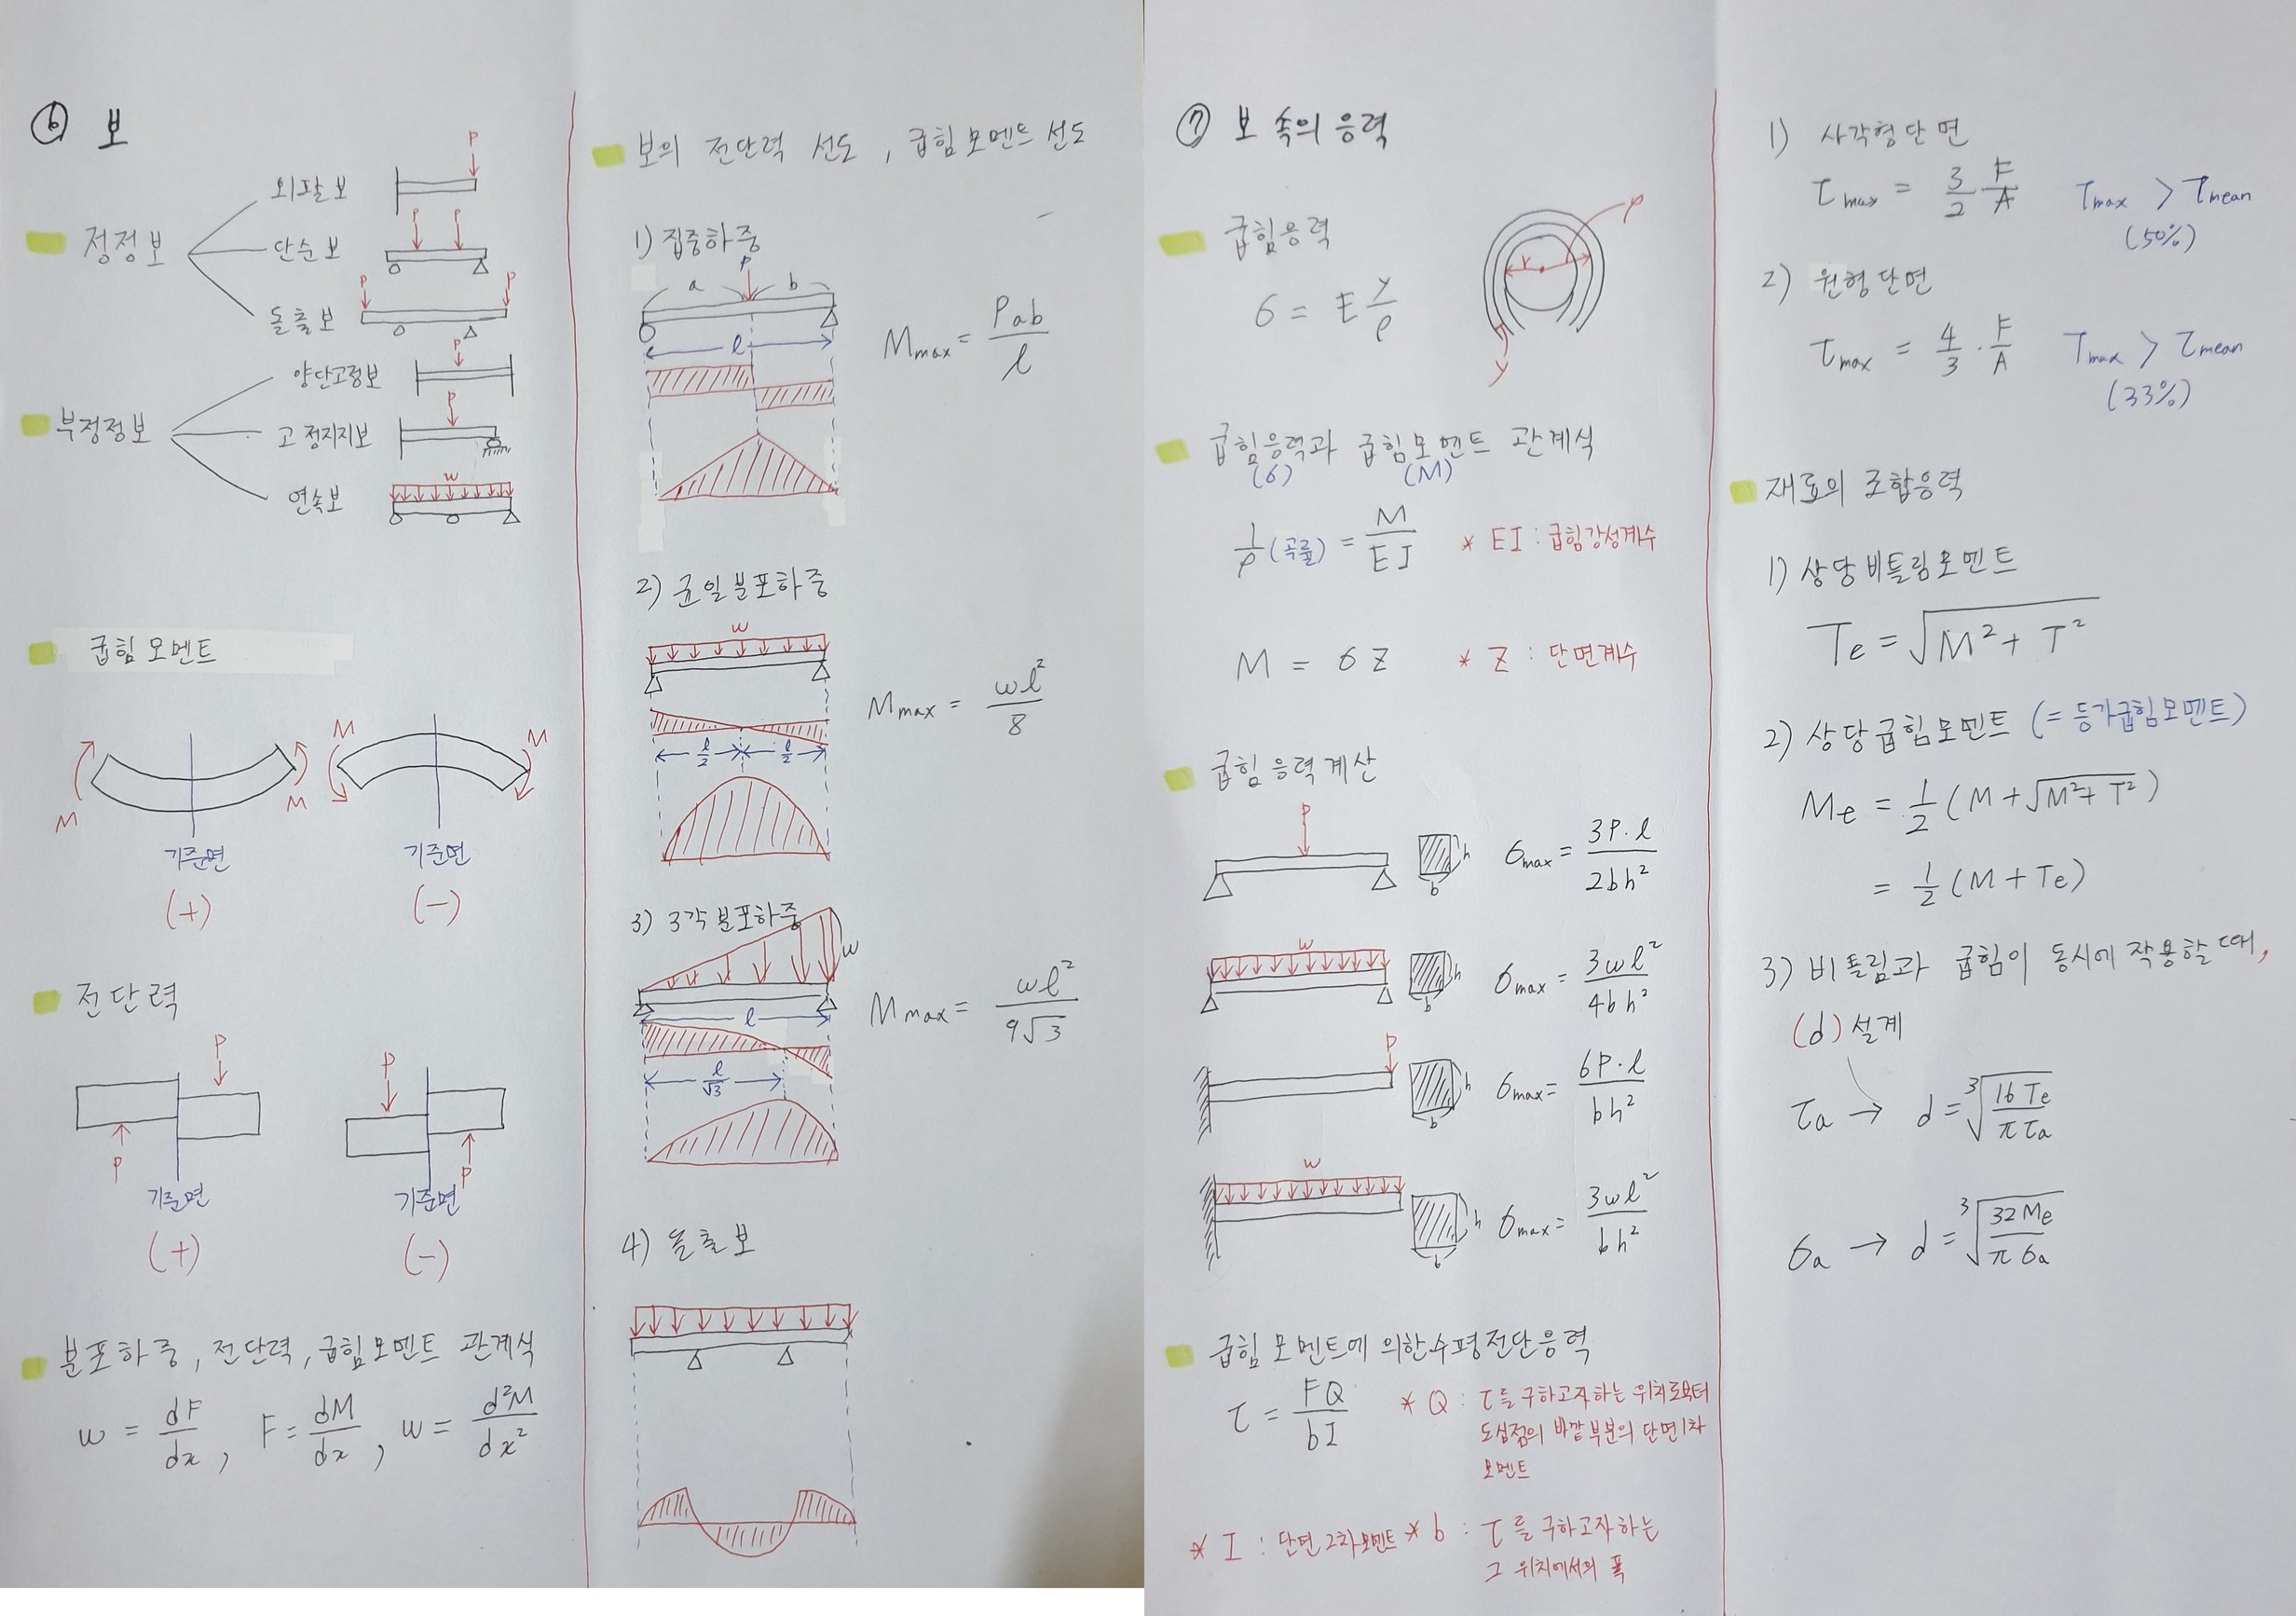 ⑥ 보
정정보
외팔보
P
단순보
P P
돌출보
P P
부정정보
양단고정보
P
고정지지보
P
연속보
w
굽힘모멘트
M M
기준면
(+)
M M
기준면
(-)
전단력
P
P
기준면
(+)
P
P
기준면
(-)
분포하중, 전단력, 굽힘모멘트 관계식
w = dF/dx, F = dM/dx, w = d²M/dx²
보의 전단력 선도, 굽힘모멘트 선도
1) 집중하중
P
a b
l
Mmax = Pab/l
2) 균일분포하중
w
l/2 l/2
Mmax = wl²/8
3) 3각분포하중
w
l
l/√3
Mmax = wl²/9√3
4) 돌출보
⑦ 보 속의 응력
굽힘응력
σ = E y/ρ
r ρ
y
굽힘응력과 굽힘모멘트 관계식
(σ) (M)
1/ρ (곡률) = M/EI * EI : 굽힘강성계수
M = σZ * Z : 단면계수
굽힘응력계산
P
h
b
σmax = 3P·l/2bh²
w
h
b
σmax = 3wl²/4bh²
P
h
b
σmax = 6P·l/bh²
w
h
b
σmax = 3wl²/bh²
굽힘모멘트에 의한 수평전단응력
τ = FQ/bI
* Q : τ를 구하고자하는 위치로부터
도심점의 바깥부분의 단면1차
모멘트
* I : 단면2차모멘트
* b : τ를 구하고자하는
그 위치에서의 폭
1) 사각형단면
τmax = 3/2 · F/A τmax > τmean
(50%)
2) 원형단면
τmax = 4/3 · F/A τmax > τmean
(33%)
재료의 조합응력
1) 상당비틀림모멘트
Te = √(M² + T²)
2) 상당굽힘모멘트 (= 등가굽힘모멘트)
Me = 1/2 (M + √(M² + T²))
= 1/2 (M + Te)
3) 비틀림과 굽힘이 동시에 작용할 때,
(d) 설계
τa → d = ³√(16Te/πτa)
σa → d = ³√(32Me/πσa)